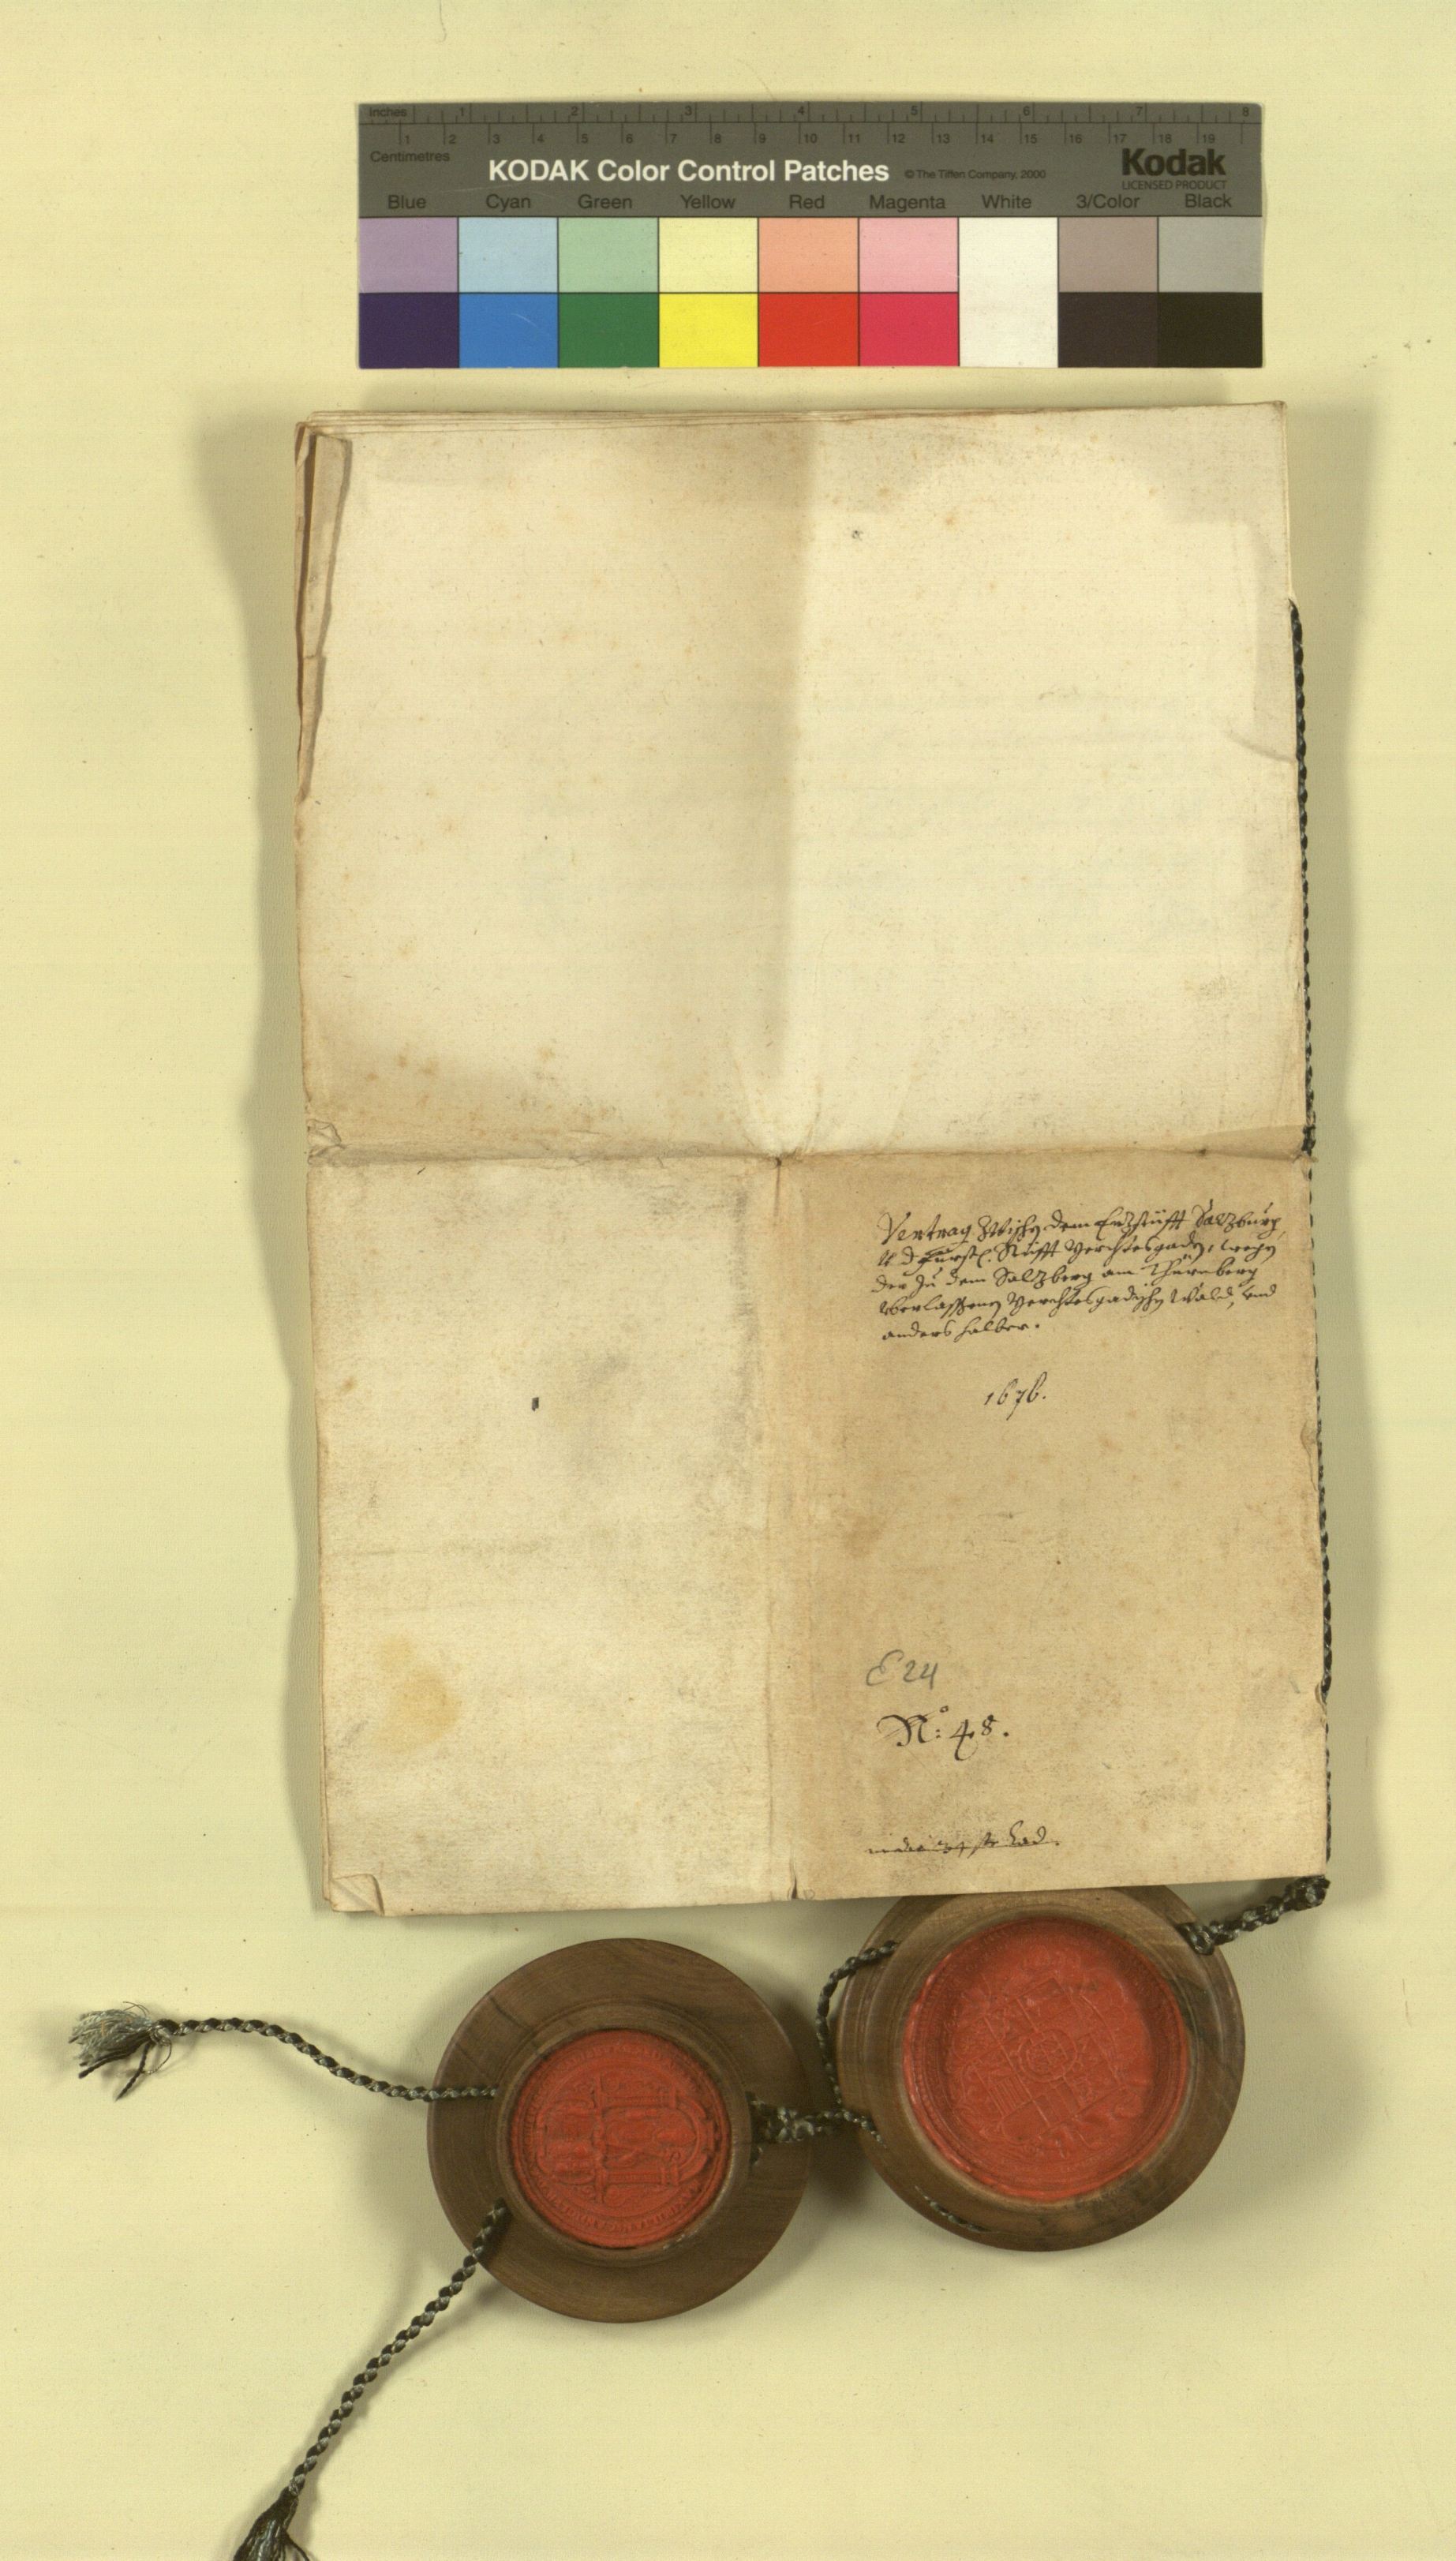 Inches 1 2 3 4 5 6 7 8
1 2 3 4 5 6 7 8 9 10 11 12 13 14 15 16 17 18 19
Centimetres
KODAK Color Control Patches © The Tiffen Company, 2000 Kodak
LICENSED PRODUCT
Blue Cyan Green Yellow Red Magenta White 3/Color Black
Vertrag Zwischen dem Erzstüfft Salzburg,
u d Fürstl. Stüfft Berchtesgaden, wegen
der Zu dem Salzberg am Thürnberg
überlassenen Berchtesgadischen Wäld, und
anders halber.
1676.
E 24
No: 48.